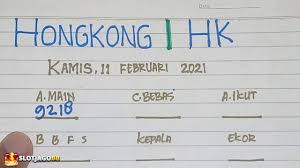 HONGKONG | HK
KAMIS, 11 FEBRUARI 2021
A. MAIN C. BEBAS A. IKUT
9218
B B F S KEPALA EKOR
SLOTJAGO88